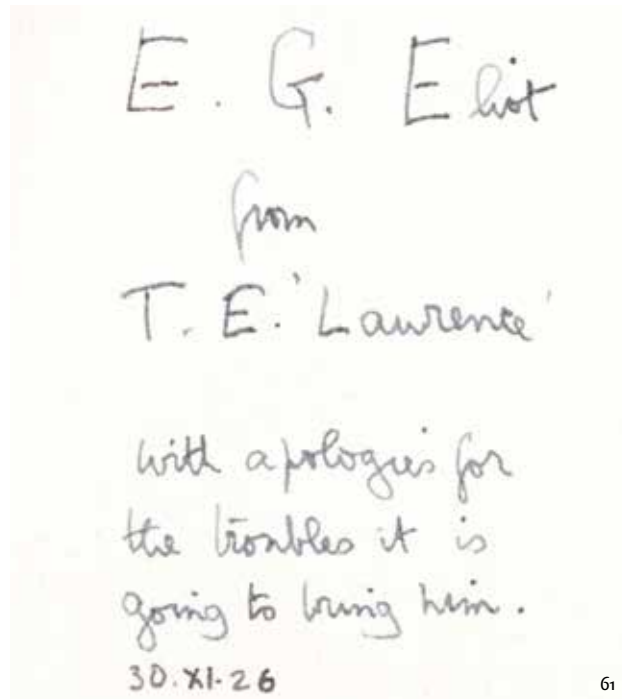 E. G. Eliot
from
T. E. 'Lawrence'
with apologies for
the troubles it is
going to bring him.
30.XI.26
61